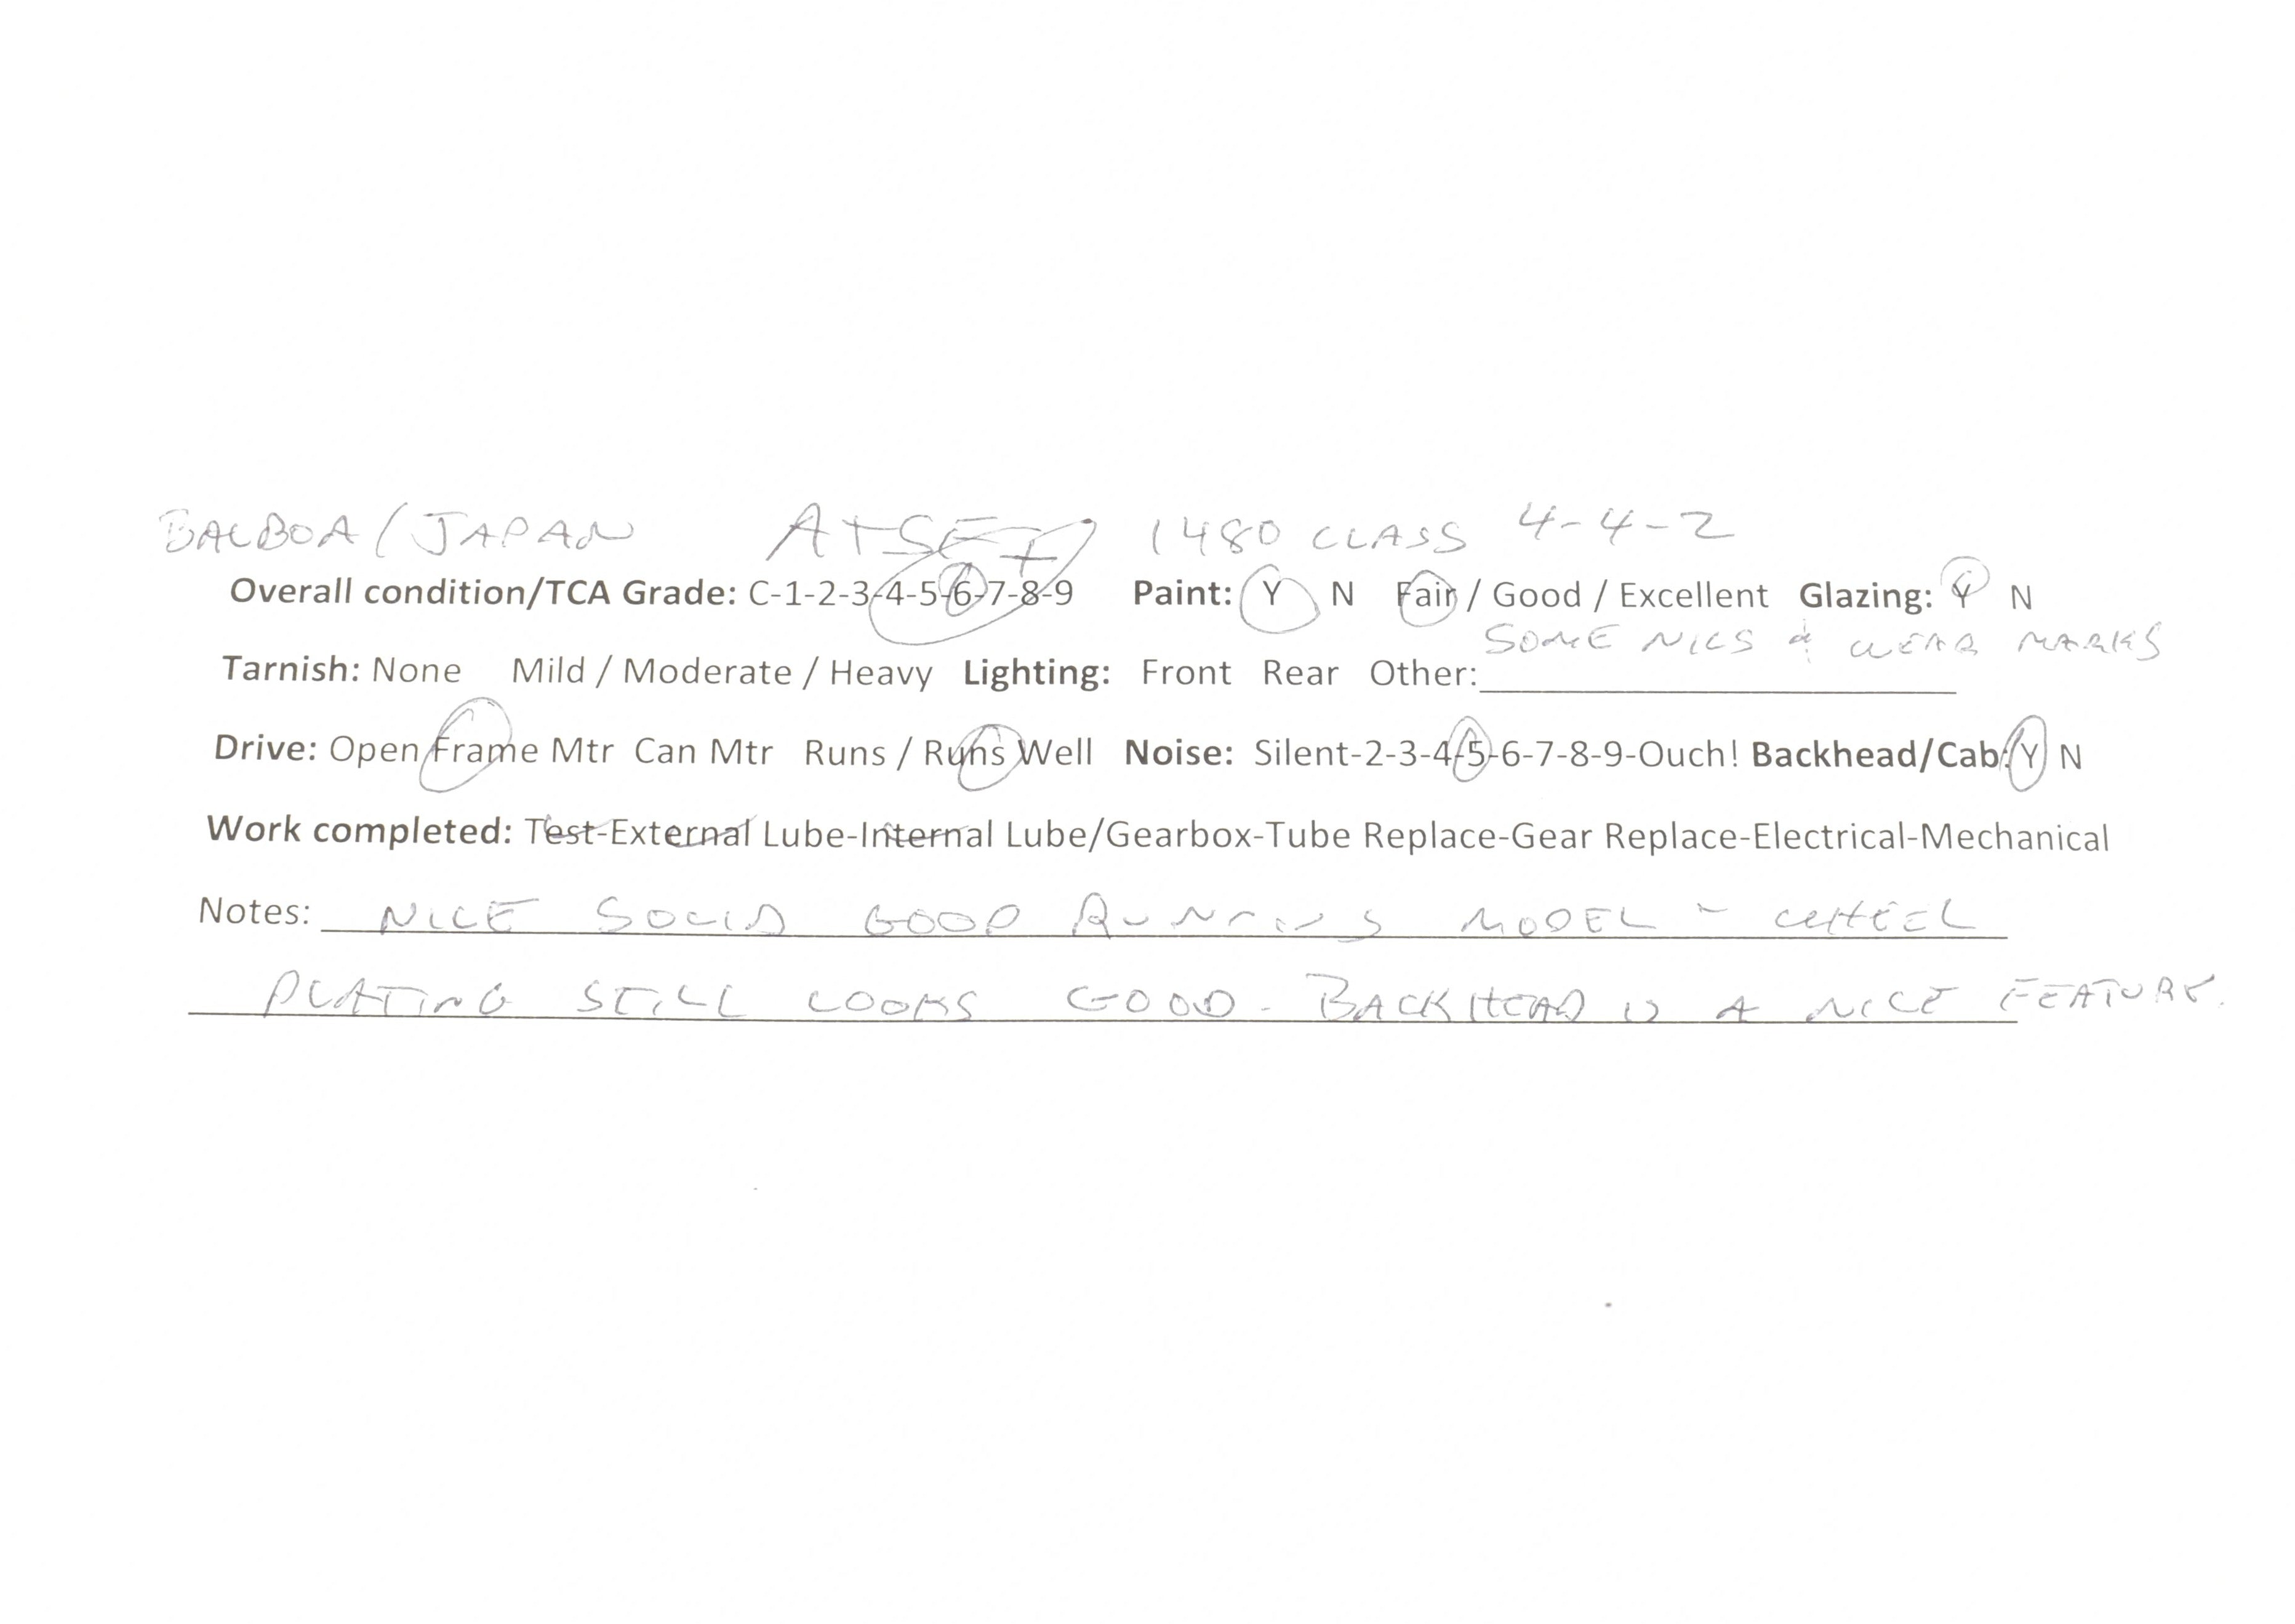 BALBOA/JAPAN AT&SF 1480 CLASS 4-4-2
Overall condition/TCA Grade: C-1-2-3-4-5-6-7-8-9 Paint: Y N Fair / Good / Excellent Glazing: Y N
SOME NICS & WEAR MARKS
Tarnish: None Mild / Moderate / Heavy Lighting: Front Rear Other:
Drive: Open Frame Mtr Can Mtr Runs / Runs Well Noise: Silent-2-3-4-5-6-7-8-9-Ouch! Backhead/Cab: Y N
Work completed: Test-External Lube-Internal Lube/Gearbox-Tube Replace-Gear Replace-Electrical-Mechanical
Notes: NICE SOLID GOOD RUNNING MODEL - WHEEL
PLATING STILL LOOKS GOOD - BACKHEAD IS A NICE FEATURE.